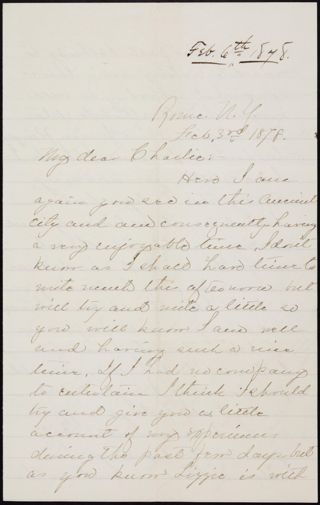 Feb. 6th 1878.
Rome N.Y.
Feb. 3rd 1878.
My dear Charlie:
Here I am
again you see in this ancient
city and am consequently having
a very enjoyable time. I don't
know as I shall have time to
write much this afternoon but
will try and write a little so
you will know I am well
and having such a nice
time. If I had no company
to entertain I think I should
try and give you a little
account of my experiences
during the past few days but
as you know Lizzie is with